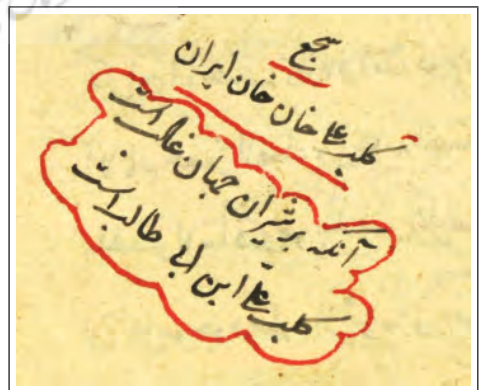 سجع
کلب علی خان خان ایران
آنکه بر شیران جهان غالب است
کلب علی ابن ابی طالب است